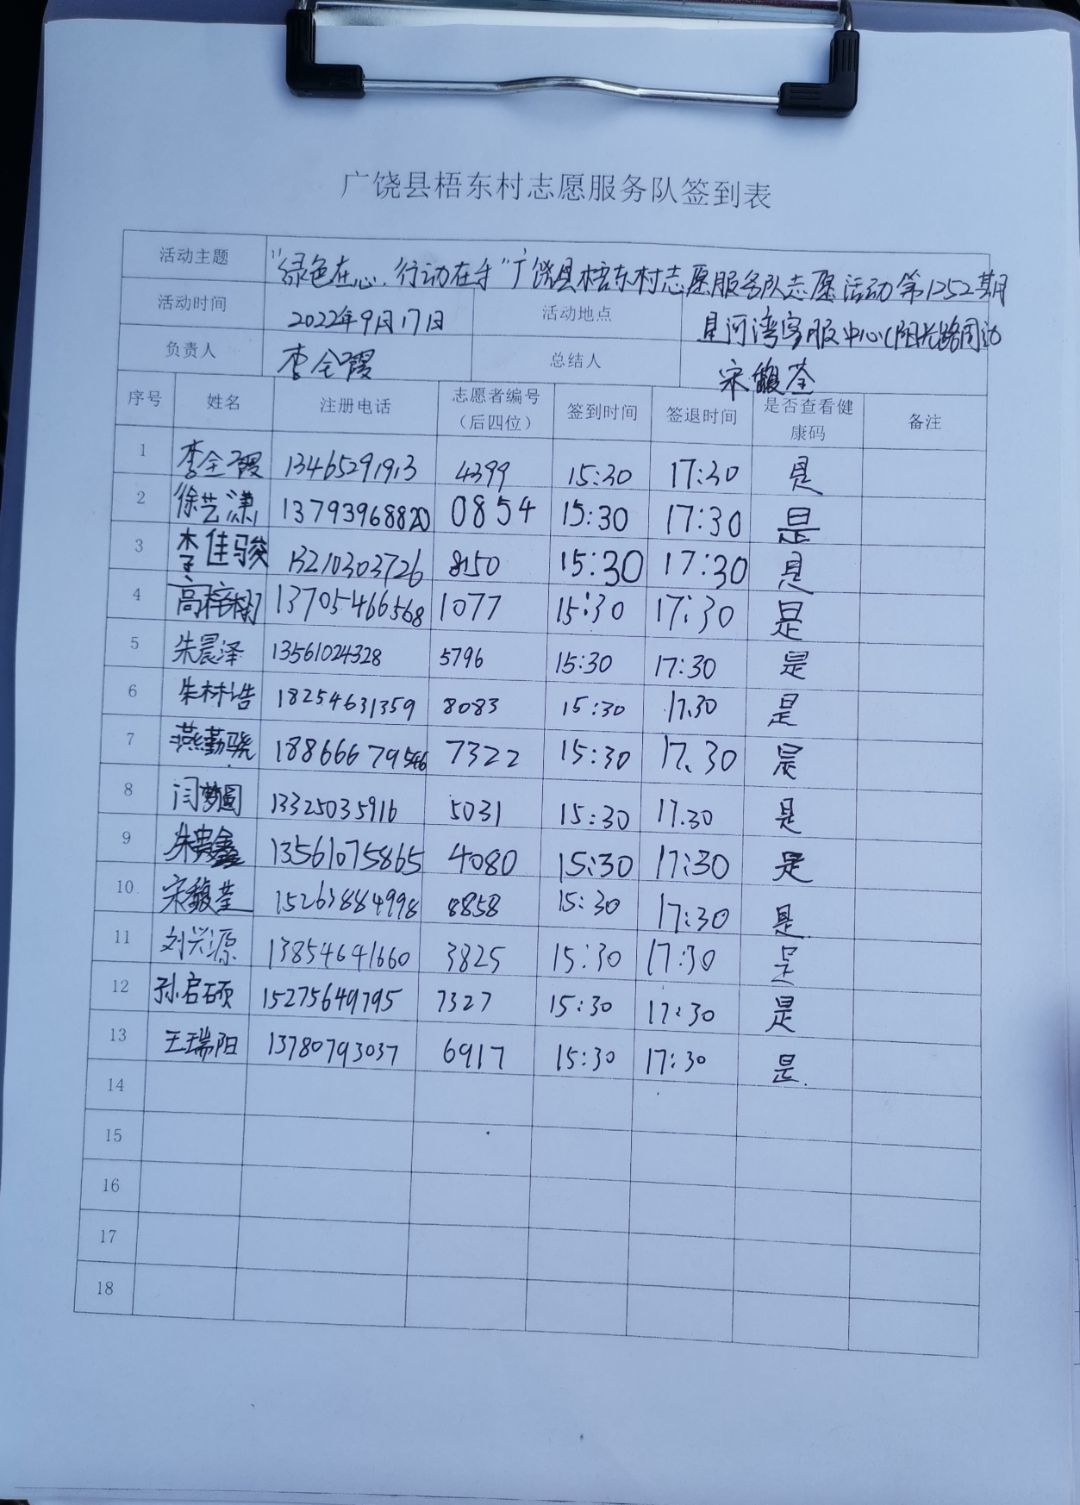 广饶县梧东村志愿服务队签到表
活动主题 "绿色在心、行动在手"广饶县梧东村志愿服务队志愿活动第1252期
活动时间 2022年9月17日 活动地点 星河湾客服中心(阳光路周边
负责人 李全霞 总结人 宋馥荃
序号 姓名 注册电话 志愿者编号（后四位） 签到时间 签退时间 是否查看健康码 备注
1 李全霞 13465291913 4399 15:30 17:30 是
2 徐艺潇 13793968820 0854 15:30 17:30 是
3 李佳骏 13210303726 8150 15:30 17:30 是
4 高梓 13705466568 1077 15:30 17:30 是
5 朱晨泽 13561024328 5796 15:30 17:30 是
6 朱林浩 18254631359 8083 15:30 17.30 是
7 燕勤骁 18866679546 7322 15:30 17.30 是
8 闫梦圆 13325035916 5031 15:30 17.30 是
9 朱鑫 13561075865 4080 15:30 17:30 是
10 宋馥荃 15263884998 8858 15:30 17:30 是
11 刘兴源 13854641660 3825 15:30 17:30 是
12 孙启硕 15275649795 7327 15:30 17:30 是
13 王瑞阳 13780793037 6917 15:30 17:30 是.
14
15
16
17
18